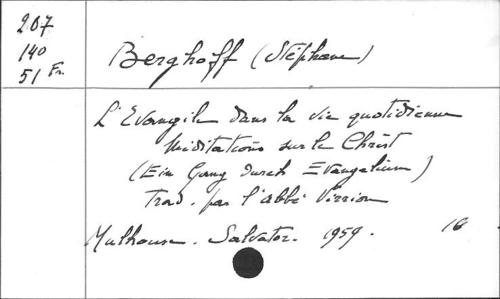 207
140
51 Fr.
Berghoff (Stéphane)
L'Evangile dans la vie quotidienne
Méditations sur le Christ
(Ein Gang durch Evangelium)
Trad. par l'abbé Virrion
Mulhouse. Salvator. 1959. 16